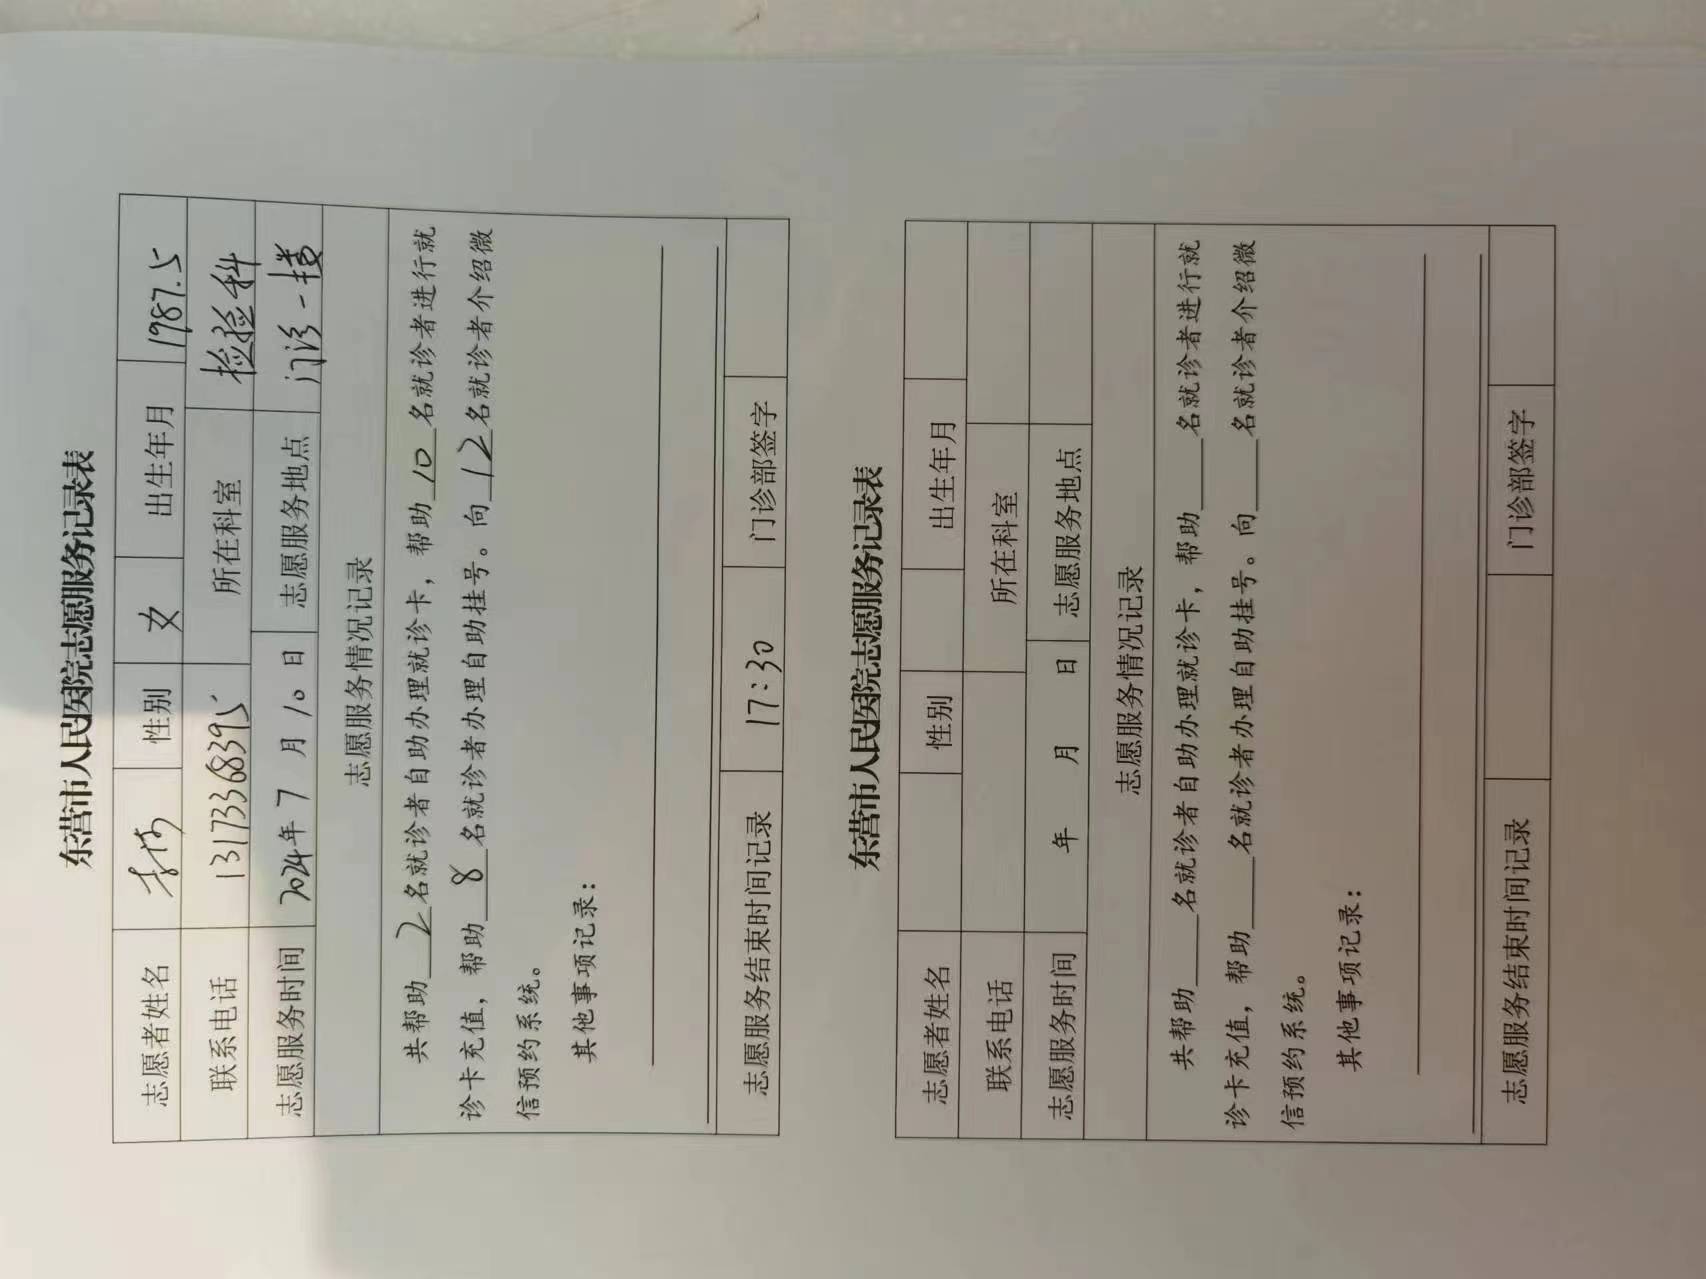 东营市人民医院志愿服务记录表
志愿者姓名 李 性别 女 出生年月 1987.5
联系电话 13173368395 所在科室 检验科
志愿服务时间 2024年7月10日 志愿服务地点 门诊一楼
志愿服务情况记录
共帮助2名就诊者自助办理就诊卡，帮助10名就诊者进行就
诊卡充值，帮助8名就诊者办理自助挂号。向12名就诊者介绍微
信预约系统。
其他事项记录：
志愿服务结束时间记录 17:30 门诊部签字
东营市人民医院志愿服务记录表
志愿者姓名 性别 出生年月
联系电话 所在科室
志愿服务时间 年 月 日 志愿服务地点
志愿服务情况记录
共帮助____名就诊者自助办理就诊卡，帮助____名就诊者进行就
诊卡充值，帮助____名就诊者办理自助挂号。向____名就诊者介绍微
信预约系统。
其他事项记录：
志愿服务结束时间记录 门诊部签字